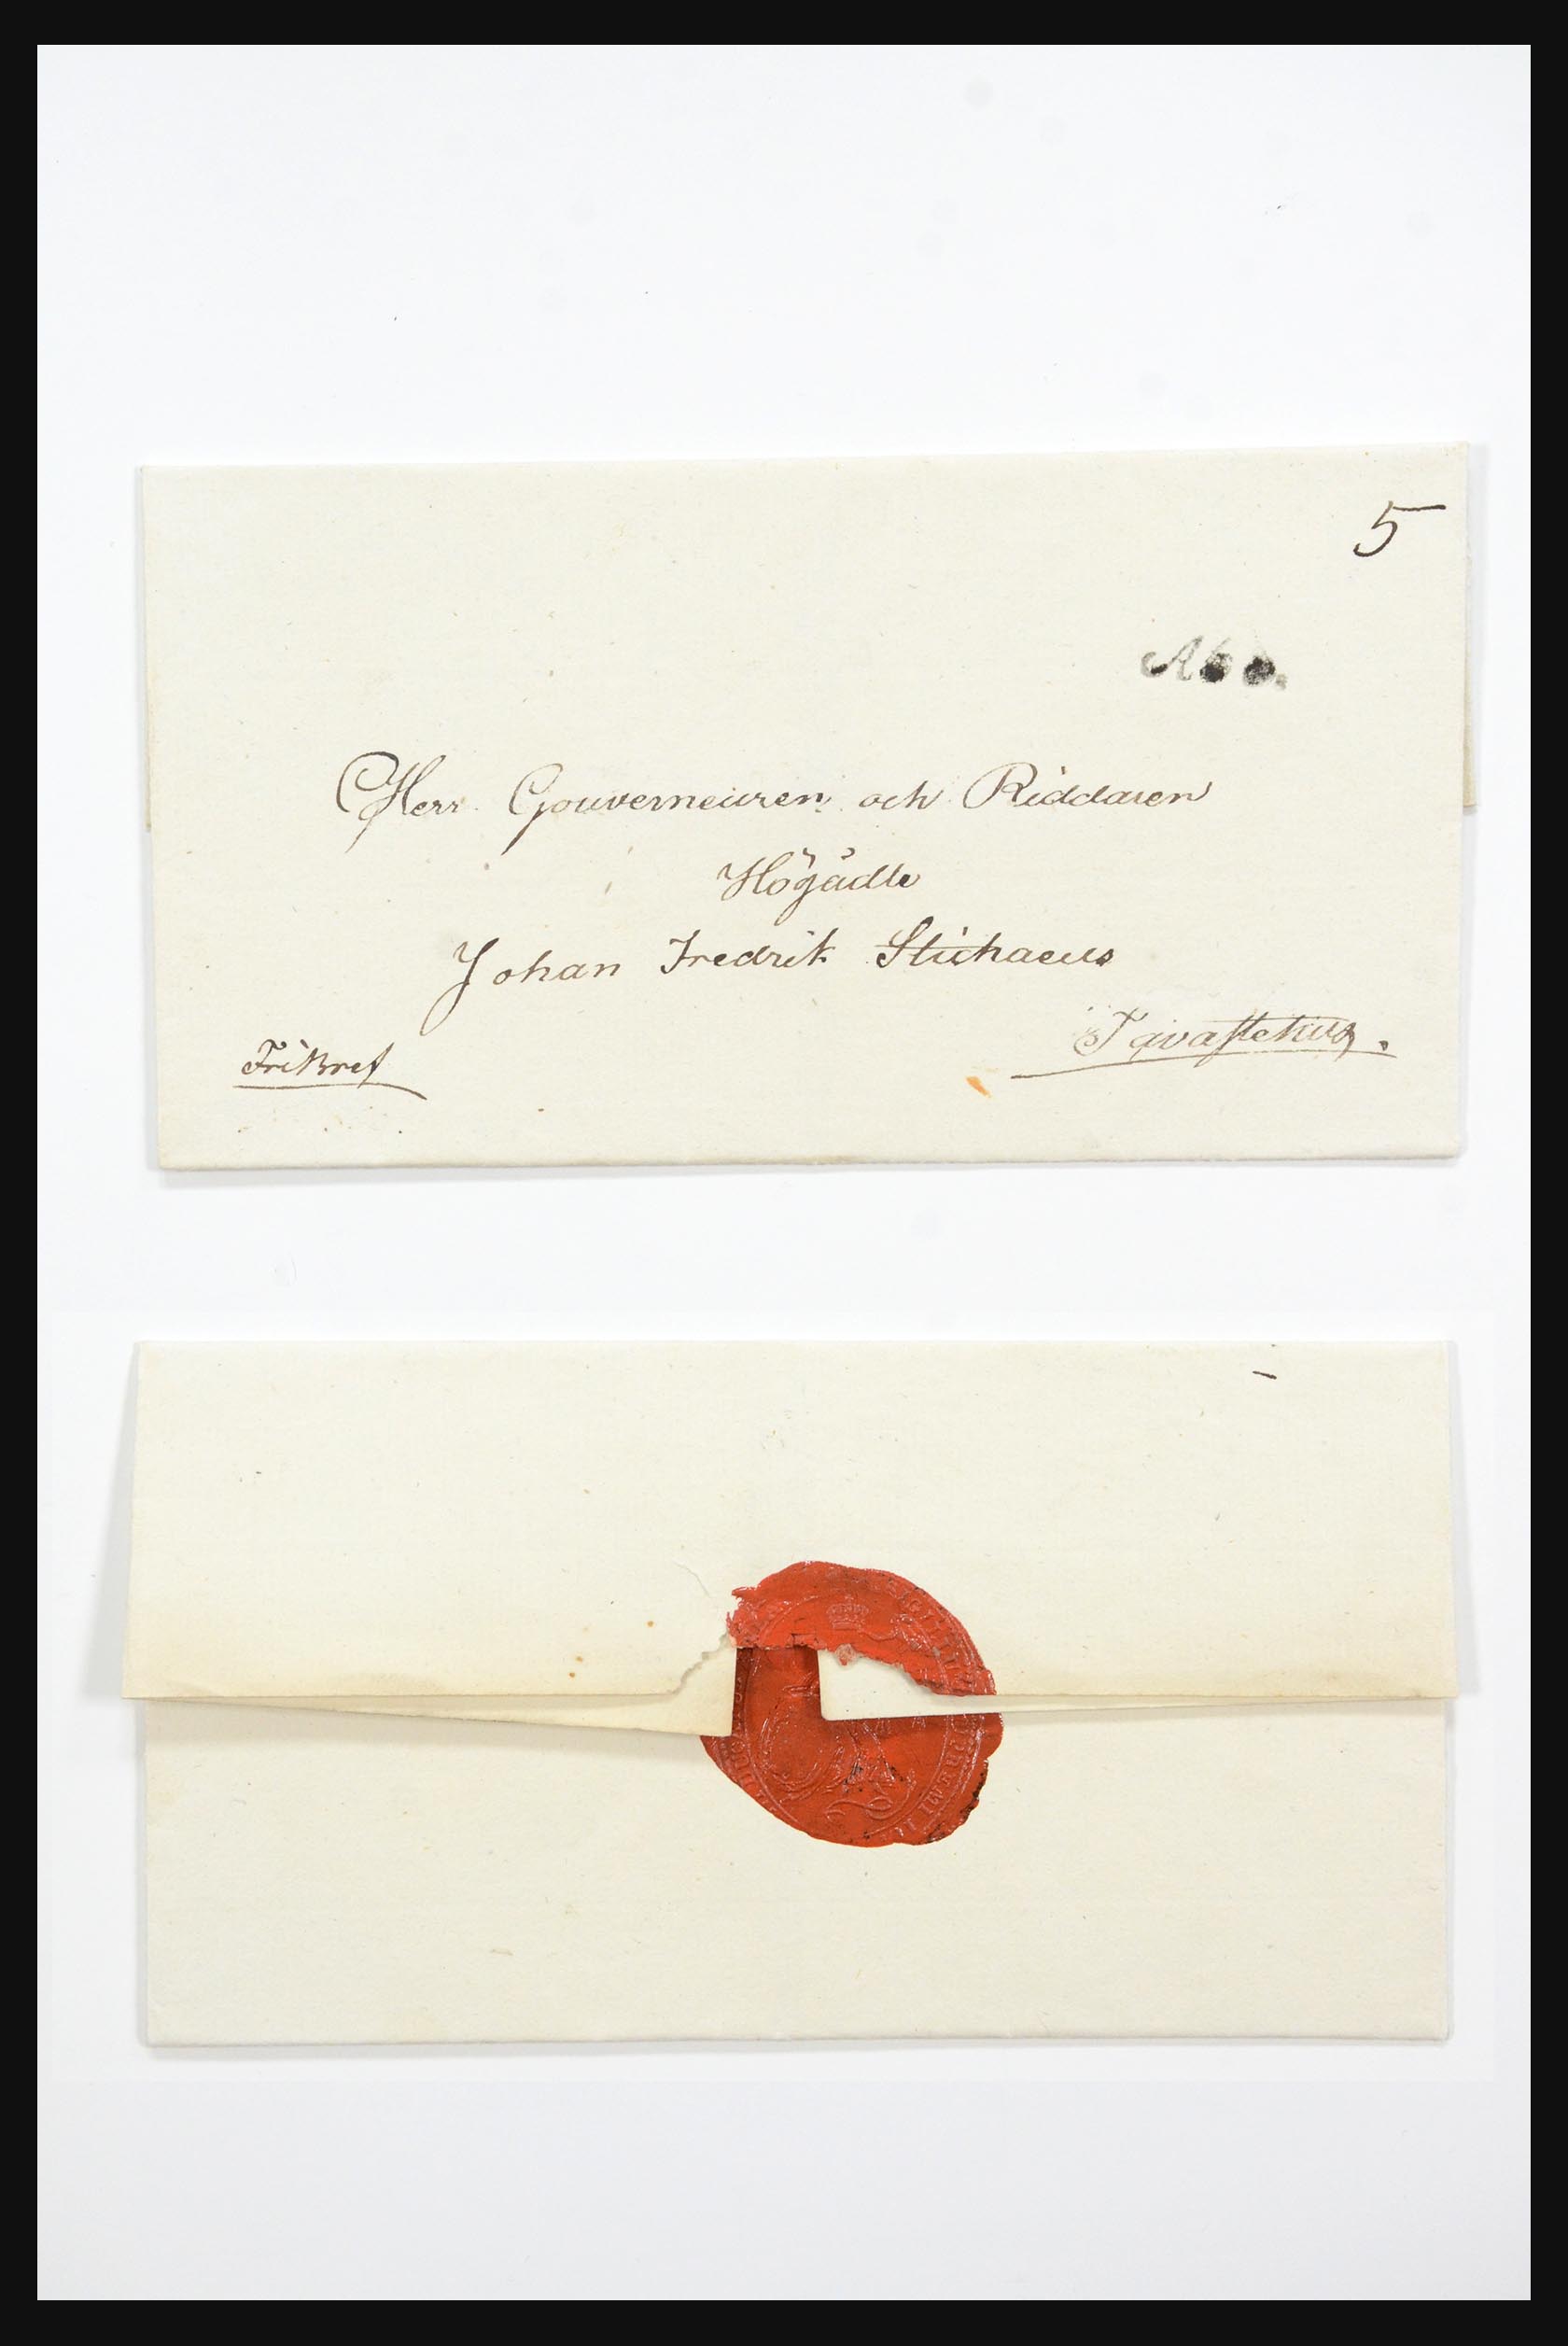 5
Åbo.
Herr Gouverneuren och Riddaren
Högädle
Johan Fredrik Stichaeus
Tavastehus.
Fribref